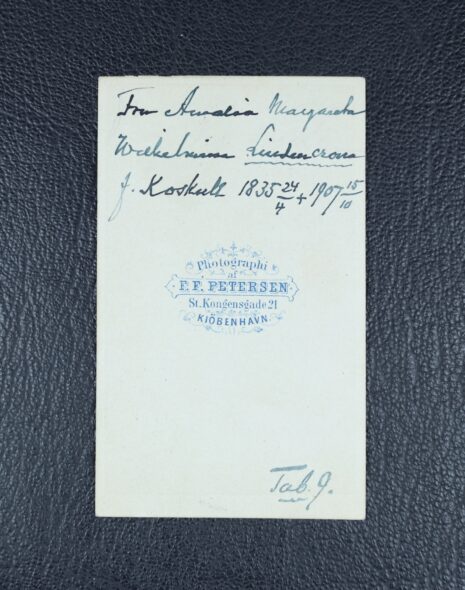 Fru Amalia Margareta
Wilhelmina Lindencrona
f. Koskull 1835 24/4 + 1907 15/10
Photographi
af
F. F. PETERSEN
St. Kongensgade 21
KIÖBENHAVN.
Tab. 9.